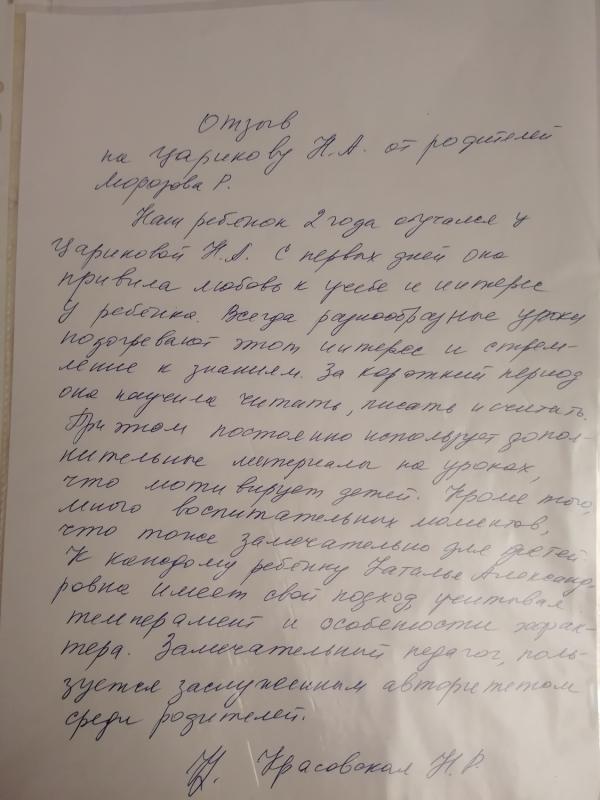 Отзыв
на Царикову Н.А. от родителей
Морозова Р.
Наш ребенок 2 года обучался у
Цариковой Н.А. С первых дней она
привила любовь к учебе и интерес
у ребёнка. Всегда разнообразные уроки
подогревают этот интерес и стрем-
ление к знаниям. За короткий период
она научила читать, писать и считать.
При этом постоянно использует допол-
нительные материалы на уроках,
что мотивирует детей. Кроме того,
много воспитательных моментов,
что тоже замечательно для детей.
К каждому ребёнку Наталья Александ-
ровна имеет свой подход учитывая
темперамент и особенности харак-
тера. Замечательный педагог, поль-
зуется заслуженным авторитетом
среди родителей.
Красовская Н.Р.